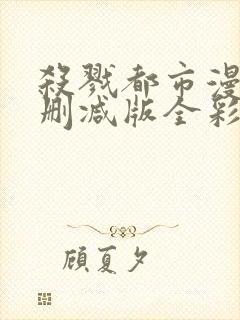 殺戮都市漫
删减版全彩
顾夏夕